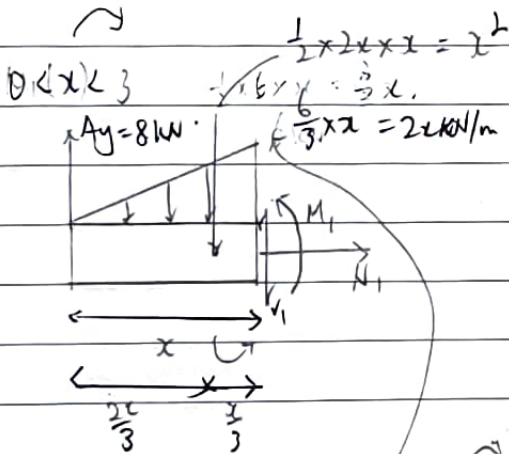 1/2 × 2x × x = x²
0<(x)< 3
Ay=8kN
6/3 × x = 2x kN/m
M₁
N₁
V₁
x
2x/3 x/3